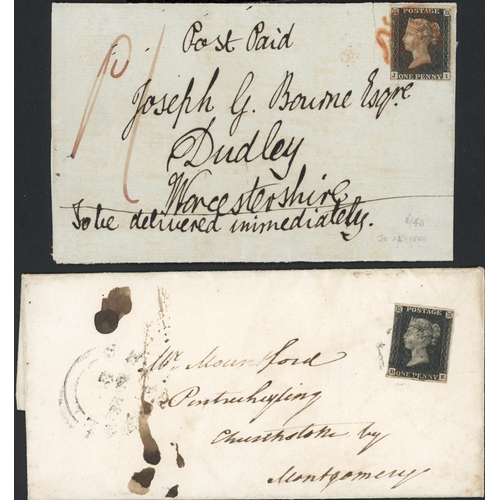 Post Paid
POSTAGE
J ONE PENNY I
Joseph G. Bourne Esqre
Dudley
Worcestershire
To be delivered immediately.
POSTAGE
ONE PENNY
Mr Mountford
Churchstoke by
Montgomery